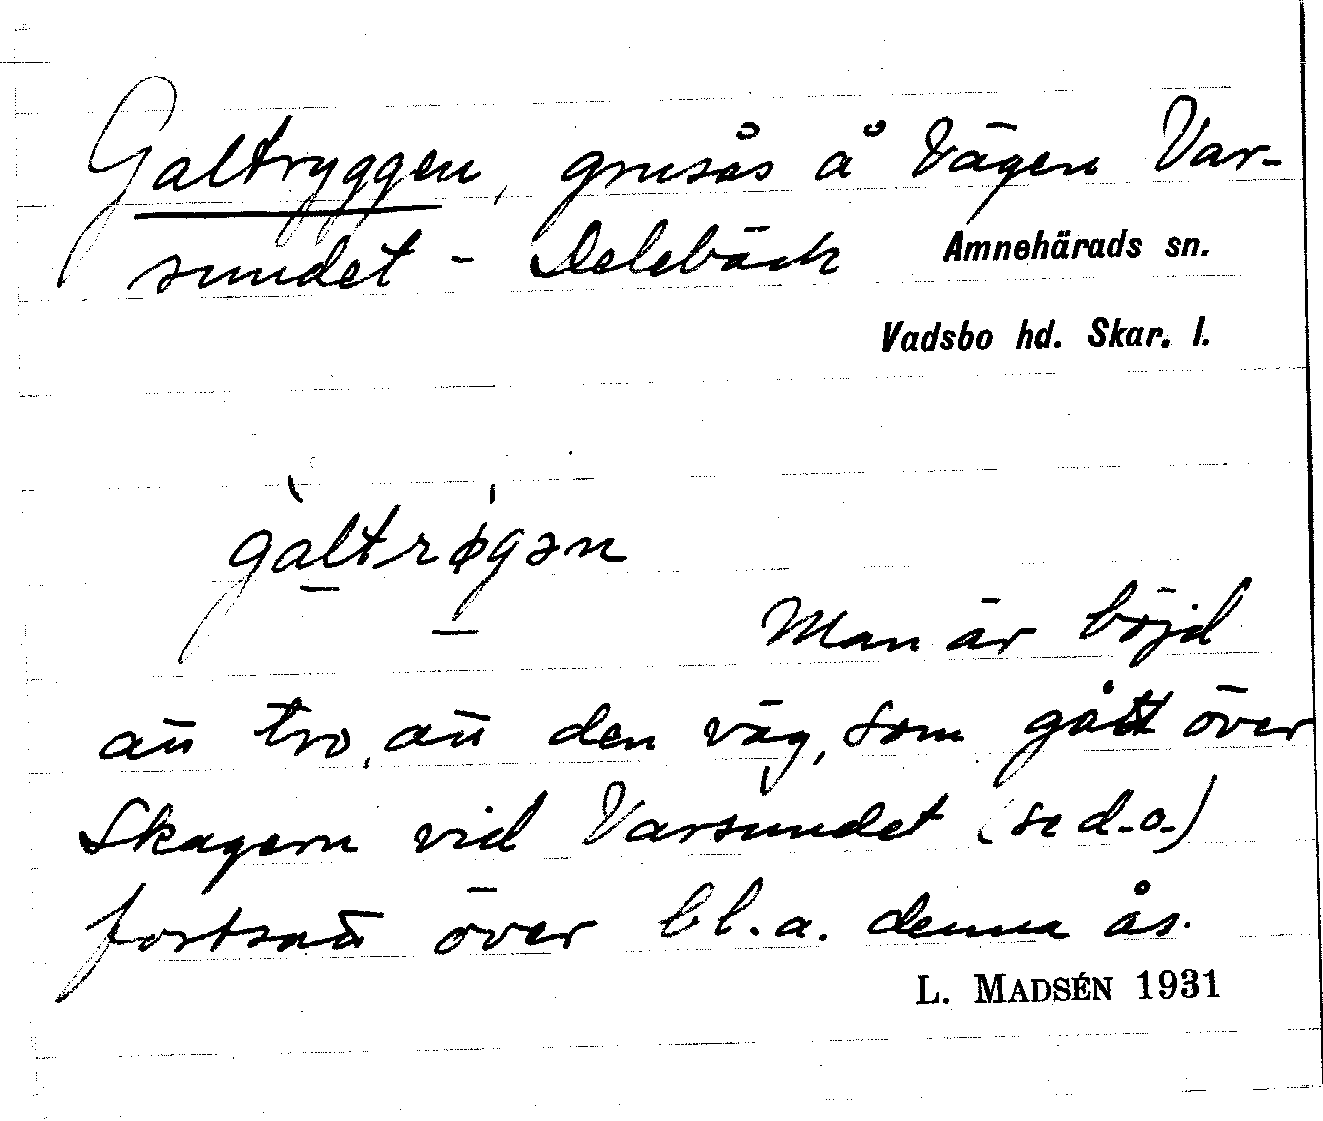 Galtryggen, grusås å vägen Var-
sundet - Delebäck
Amnehärads sn.
Vadsbo hd. Skar. l.
gàltrø̍gən
Man är böjd
att tro, att den väg, som gått över
Skagern vid Varsundet (se d.o.)
fortsatt över bl.a. denna ås.
L. MADSÉN 1931